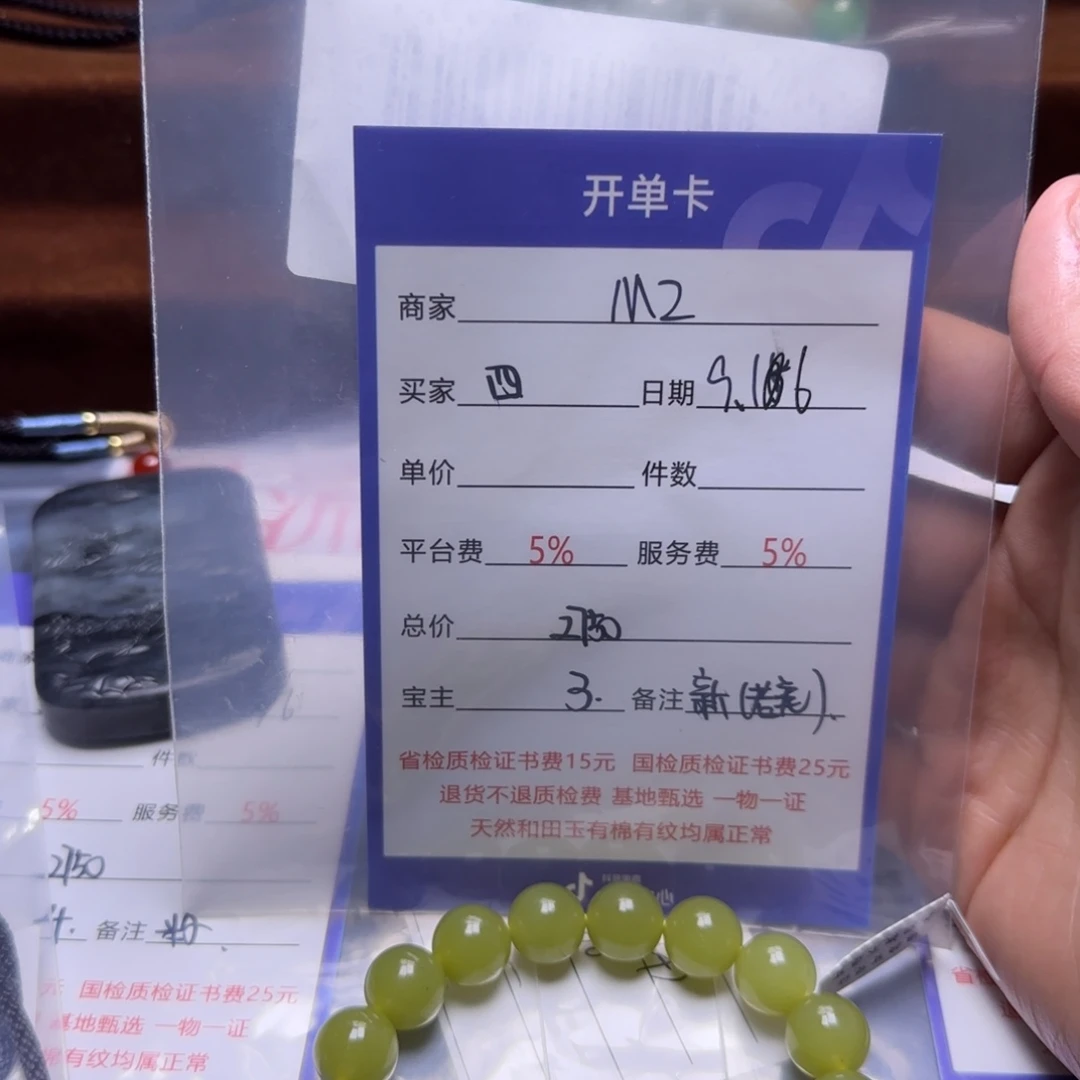 开单卡
商家 M2
买家 四 日期
单价 件数
平台费 5% 服务费 5%
总价 2150
宝主 3. 备注 新
省检质检证书费15元 国检质检证书费25元
退货不退质检费 基地甄选 一物一证
天然和田玉有棉有纹均属正常
件
5% 服务费 5%
2150
备注
国检质检证书费25元
基地甄选 一物一证
棉有纹均属正常